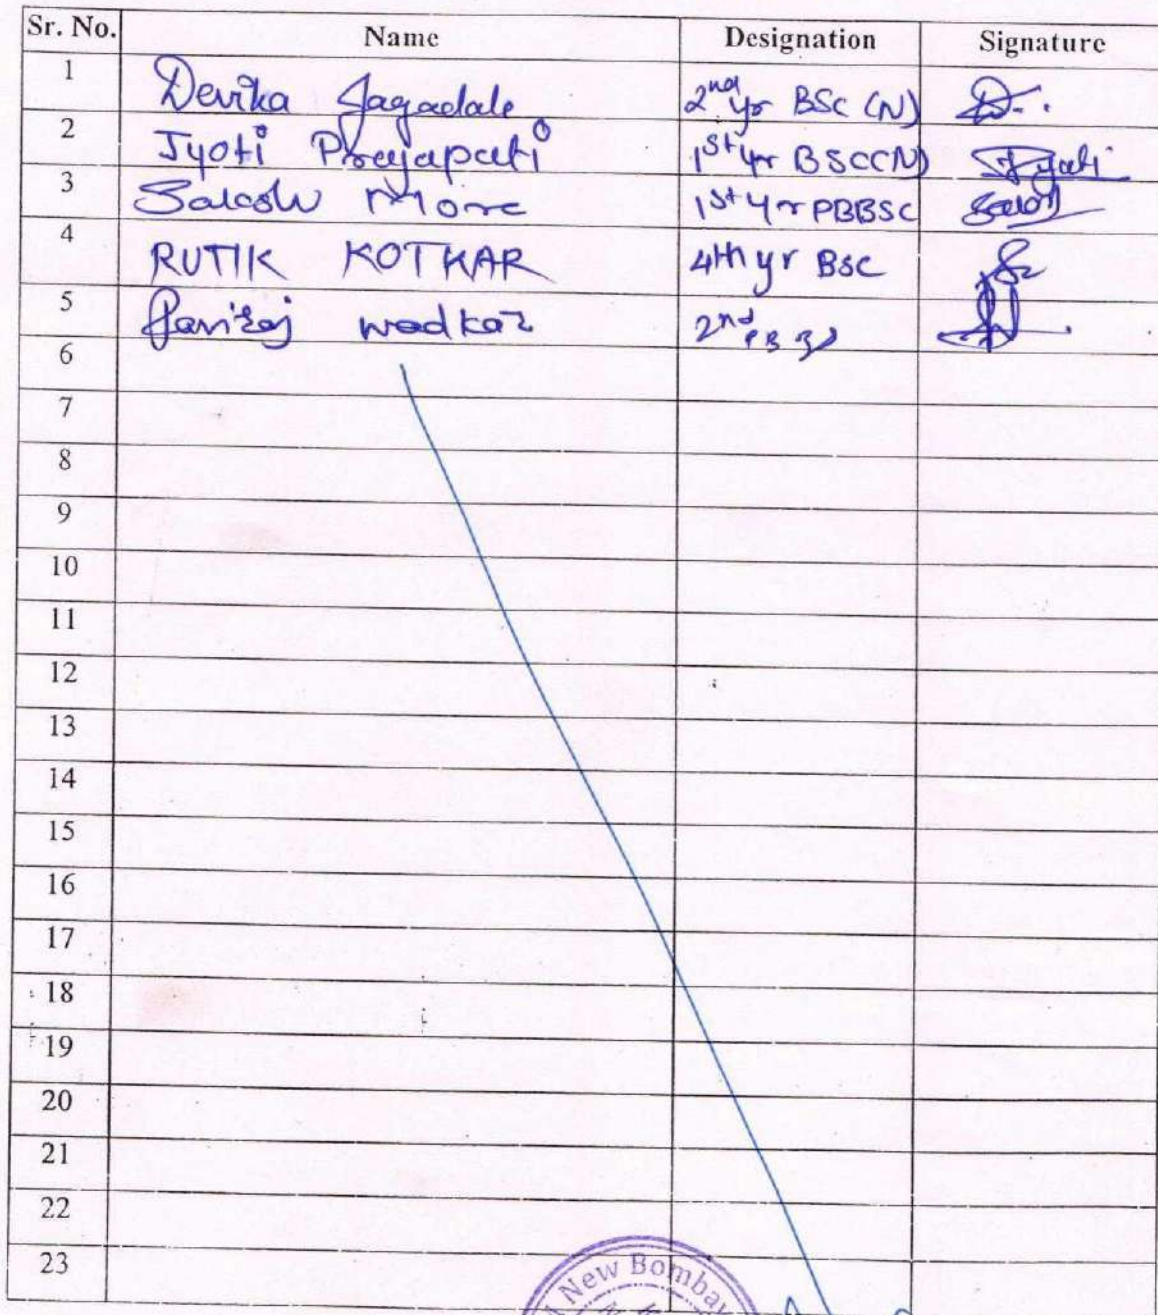 Sr. No. Name Designation Signature
1 Devika Jagadale 2nd yr BSc (N)
2 Jyoti Prajapati 1st yr BSCC(N) Jyoti
3 More 1st yr PBBSC
4 RUTIK KOTKAR 4th yr BSc
5 wadkar 2nd PB
6
7
8
9
10
11
12
13
14
15
16
17
18
19
20
21
22
23
New Bombay